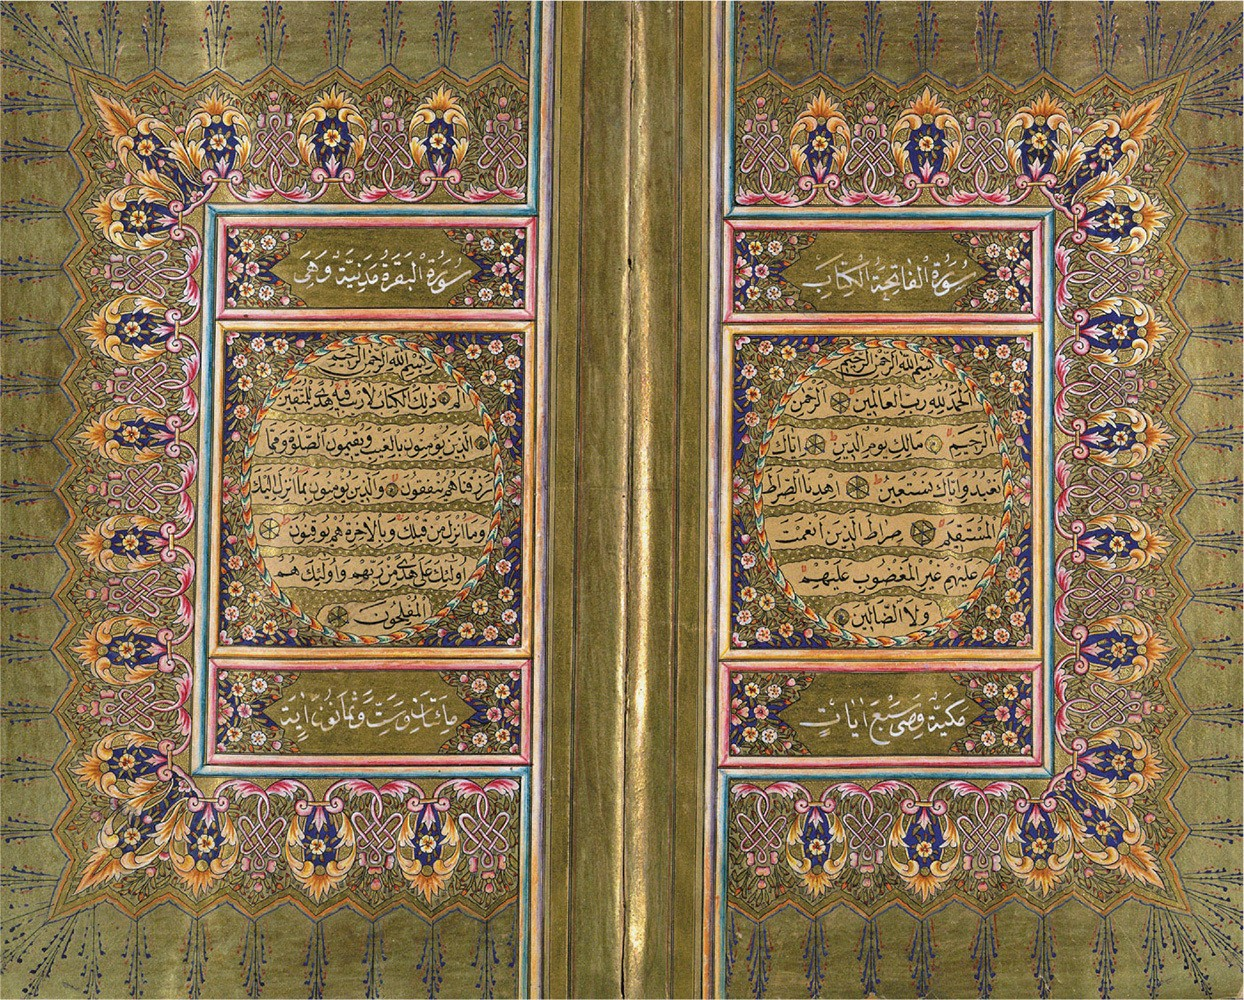 سُورَةُ الفَاتِحَةُ الْكِتَابِ
بسم الله الرحمن الرحيم
الحمد لله رب العالمين الرحمن
الرحيم مالك يوم الدين اياك
نعبد واياك نستعين اهدنا الصراط
المستقيم صراط الذين انعمت
عليهم غير المغضوب عليهم
ولا الضالين
مَكِيَّة وَهِيَ سَبْعَ اٰيَاتٍ
سُورَةُ الْبَقَرَةِ مَدَنِيَّةٌ وَهِيَ
بسم الله الرحمن الرحيم
الم ذلك الكتاب لا ريب فيه هدى للمتقين
الذين يؤمنون بالغيب ويقيمون الصلوة ومما
رزقناهم ينفقون والذين يؤمنون بما انزل اليك
وما انزل من قبلك وبالاخرة هم يوقنون
اولئك على هدى من ربهم واولئك هم
المفلحون
مِائَتَانِ وَسِتَّ وَثَمَانُونَ اٰيَة